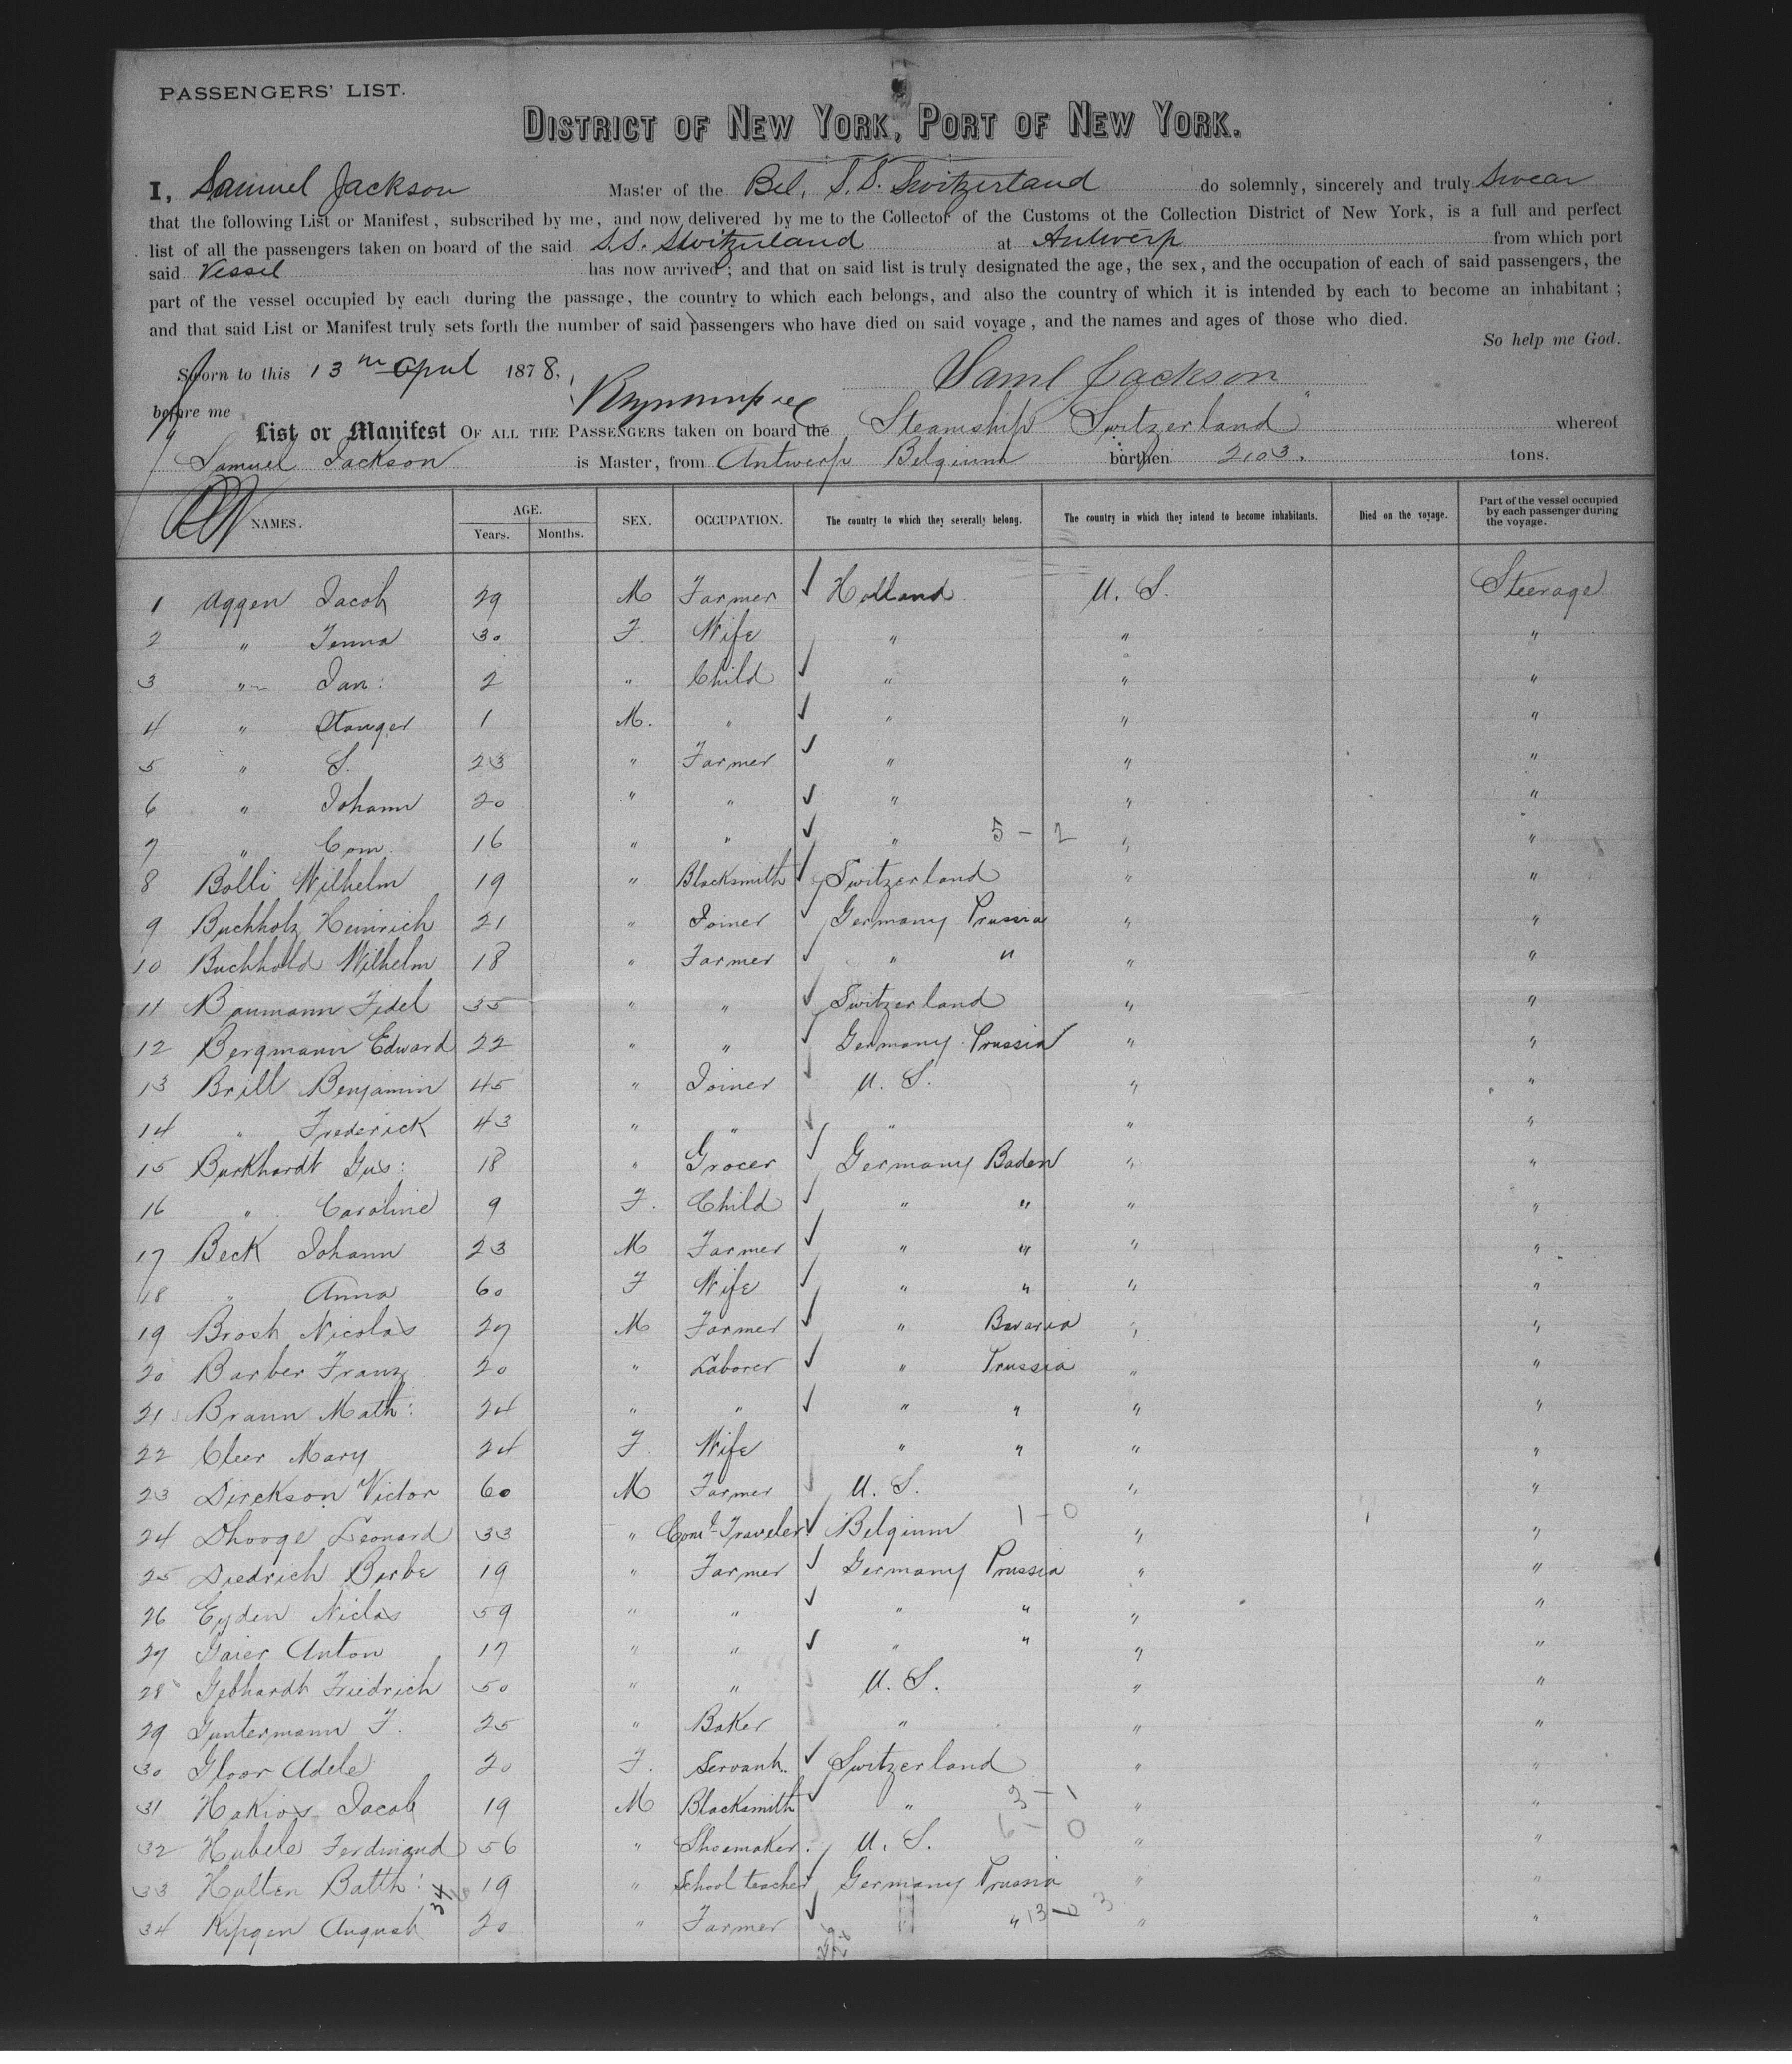 PASSENGERS' LIST.
DISTRICT OF NEW YORK, PORT OF NEW YORK.
I, Samuel Jackson Master of the Bel. S.S. Switzerland do solemnly, sincerely and truly swear
that the following List or Manifest, subscribed by me, and now delivered by me to the Collector of the Customs ot the Collection District of New York, is a full and perfect
list of all the passengers taken on board of the said S.S. Switzerland at Antwerp from which port
said Vessel has now arrived; and that on said list is truly designated the age, the sex, and the occupation of each of said passengers, the
part of the vessel occupied by each during the passage, the country to which each belongs, and also the country of which it is intended by each to become an inhabitant;
and that said List or Manifest truly sets forth the number of said passengers who have died on said voyage, and the names and ages of those who died.
So help me God.
Sworn to this 13 April 1878. Saml Jackson
before me
List or Manifest OF ALL THE PASSENGERS taken on board the Steamship Switzerland whereof
Samuel Jackson is Master, from Antwerp Belgium burthen 2103. tons.
NAMES. AGE. Years. Months. SEX. OCCUPATION. The country to which they severally belong. The country in which they intend to become inhabitants. Died on the voyage. Part of the vessel occupied by each passenger during the voyage.
1 Aggen Jacob 29 M Farmer ✓ Holland U. S. Steerage
2 " Jenna 30 F. Wife " " "
3 " Jan: 2 " Child ✓ " " "
4 " Stanger 1 M. " ✓ " " "
5 " S. 23 " Farmer ✓ " " "
6 " Johann 20 " " ✓ " " "
7 " Com. 16 " " ✓ " 5 - 2 " "
8 Bolli Wilhelm 19 " Blacksmith ✓ Switzerland " "
9 Buchholz Heinrich 21 " Joiner ✓ Germany Prussia " "
10 Buchhold Wilhelm 18 " Farmer ✓ " " " "
11 Baumann Fidel 35 " " ✓ Switzerland " "
12 Bergmann Edward 22 " " ✓ Germany Prussia " "
13 Brill Benjamin 45 " Joiner ✓ U. S. " "
14 " Frederick 43 " " ✓ " " "
15 Burkhardt Gus: 18 " Grocer ✓ Germany Baden " "
16 " Caroline 9 F. Child ✓ " " " "
17 Beck Johann 23 M Farmer ✓ " " " "
18 " Anna 60 F Wife ✓ " " " "
19 Brosh Nicolas 27 M Farmer ✓ " Bavaria " "
20 Barber Franz 20 " Laborer ✓ " Prussia " "
21 Braun Math: 24 " " ✓ " " " "
22 Cleer Mary 24 F Wife " " " "
23 Dirckson Victor 60 M Farmer ✓ U. S. " "
24 Dhooge Leonard 33 " Coml Traveler ✓ Belgium 1 - 0 " "
25 Diedrich Birbe 19 " Farmer ✓ Germany Prussia " "
26 Eyden Niclas 59 " " ✓ " " " "
27 Gaier Anton 17 " " ✓ " " " "
28 Gebhardt Friedrich 50 " " U. S. " "
29 Guntermann F. 25 " Baker " " "
30 Gloor Adele 20 F. Servant ✓ Switzerland " "
31 Hakios Jacob 19 M Blacksmith ✓ " 3 - 1 " "
32 Hubele Ferdinand 56 " Shoemaker. U. S. 6 - 0 " "
33 Halten Batth: 19 " School teacher ✓ Germany Prussia " "
34 Kipgen August 34 20 " Farmer ✓ " " 13 - 3 " "